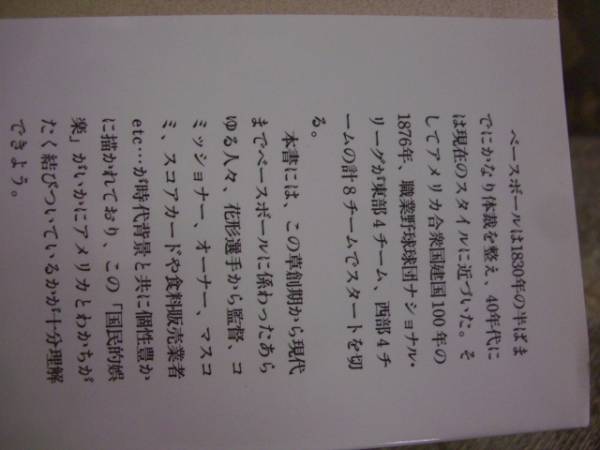 ベースボールは1830年の半ばま
でにかなり体裁を整え、40年代に
は現在のスタイルに近づいた。そ
してアメリカ合衆国建国100年の
1876年、職業野球球団ナショナル・
リーグが東部4チーム、西部4チ
ームの計8チームでスタートを切
る。
本書には、この草創期から現代
までベースボールに係わったあら
ゆる人々、花形選手から監督、コ
ミッショナー、オーナー、マスコ
ミ、スコアカードや食料販売業者
etc…が時代背景と共に個性豊か
に描かれており、この「国民的娯
楽」がいかにアメリカとわかちが
たく結びついているかが十分理解
できよう。